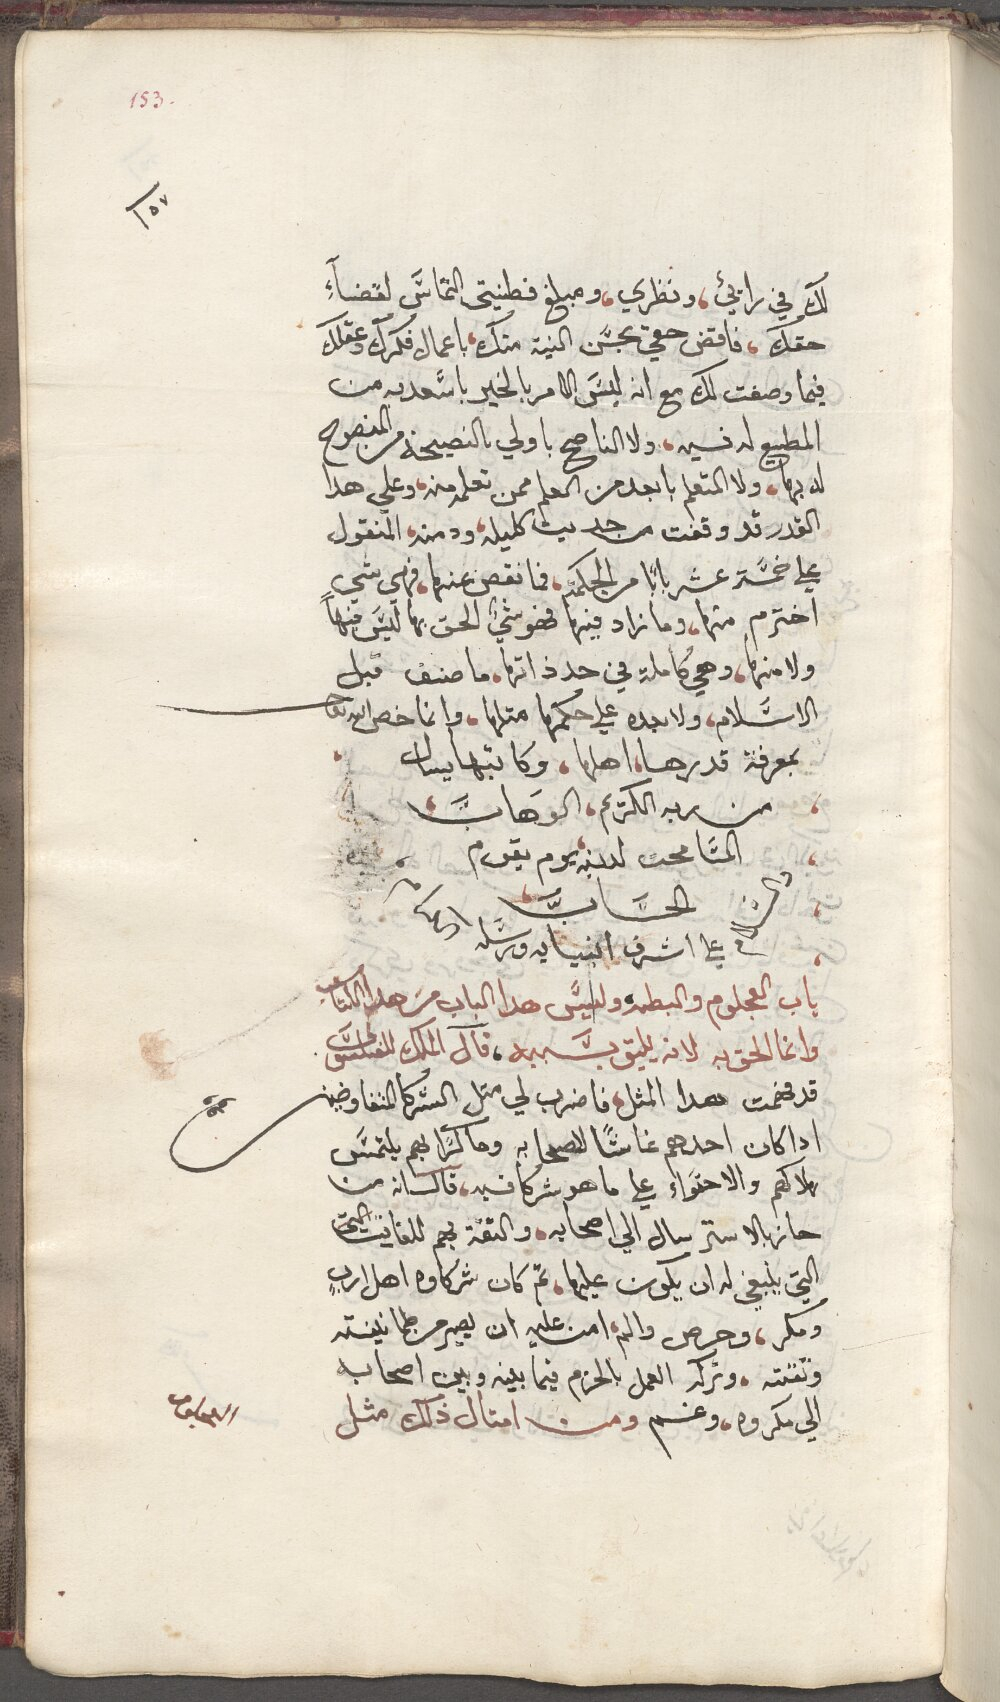 153.
١٥٧
لك في رايئ، ونظري، ومبلغ فطنيتى التماسَ لقضاءِ
حقك، فاقض حقي بحسن النية منك، باعمال فكرك وعقلك
فيما وصفت لك مع انه ليس الامر بالخير باسعد به من
المطيع له فيه، ولا الناصح باولي بالنصيحة من المنصوح
له بها، ولا المتعلم بابعد من العلم ممن تعلمه منه، وعلي هدا
القدر قد وقفت من حديث كليله، ودمنه، المنقول
علي خمسة عشر بابًا من الحكمة، فما نقص عنها، فهي شي
اخترم منها، وما زاد فيها فهو شئ الحق بها ليس فيها
ولا منها، وهي كاملة في حد ذاتها، ما صنف قبل
الاسلام، ولا بعده علي حكمها متلها، وانما خص الله تعا
بمعرفة قدرها، اهلها، وكاتبها يسال
من ربه الكريم، الوهاب
المسامحت لدينه يوم يقوم
الحساب
والسلام
علي اشرف انبيايه ورسله
باب العجلوم والبطه، وليس هدا الباب من هدا الكتاب
وانما الحق به لانه يليق بسببه، قال الملك للفيلسوف
قد فهمت هدا المثل، فاضرب لي متل الشركا المتفاوضين
ادا كان احدهم غاشًا لاصحابه وماكرًا بهم يلتمس
هلاكهم والاحتواء علي ما هو شركا فيه، قال انه من
جازبالاسترسال الي اصحابه، والتقة بهم للغايت التى
التي ينبغي له ان يكون عليها، تم كان شركاوه اهل ارب
ومكر، وحرص والم، امن عليه ان يصير من طمانينته
وتقته، وتركه العمل بالحزم فيما بينه وبين اصحابه
الي مكروه، وغم ومن امتال ذلك متل
العجلوم